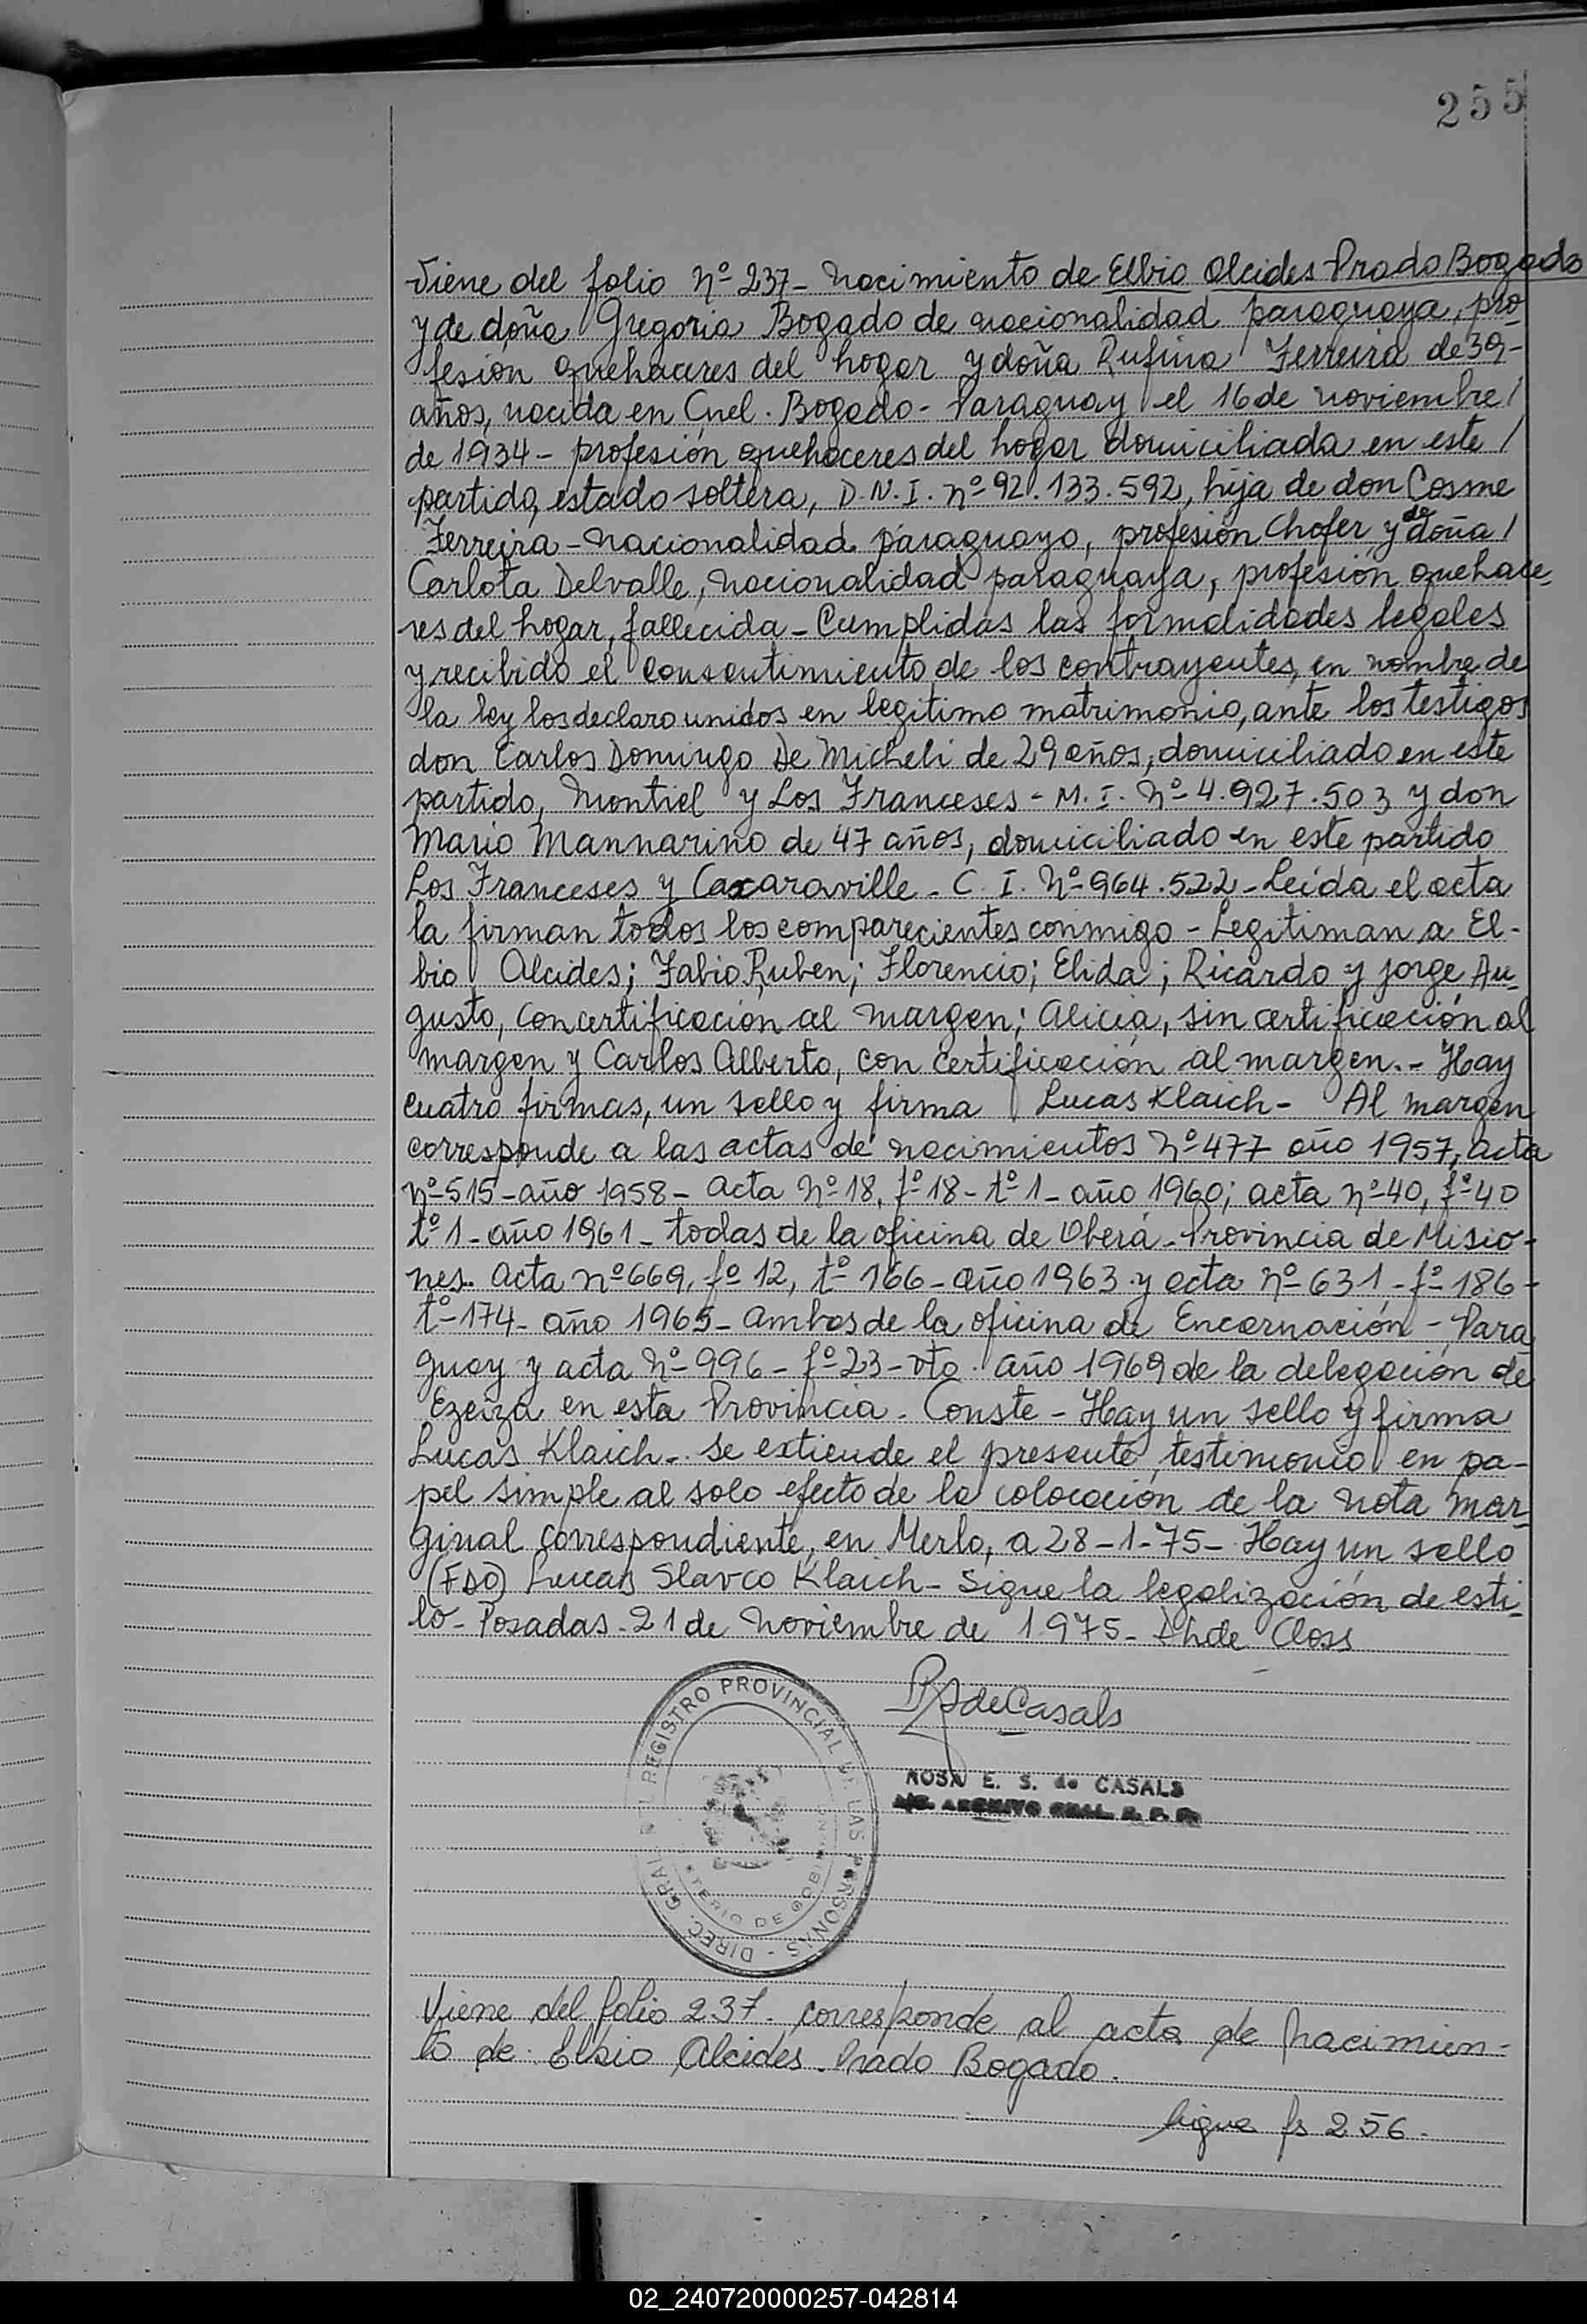 255
Viene del folio Nº 237 - Nacimiento de Elbio Alcides Prado Bogado
y de doña Gregoria Bogado de nacionalidad paraguaya, pro-
fesión quehaceres del hogar y doña Rufina Ferreira de 39 -
años, nacida en Cnel. Bogado - Paraguay el 16 de noviembre /
de 1934 - profesión quehaceres del hogar domiciliada en este /
partido, estado soltera, D.N.I. nº 92.133.592, hija de don Cosme
Ferreira - nacionalidad paraguayo, profesión Chofer y de doña /
Carlota Delvalle, nacionalidad paraguaya, profesión quehace-
res del hogar, fallecida - Cumplidas las formalidades legales
y recibido el consentimiento de los contrayentes, en nombre de
la ley los declaro unidos en legitimo matrimonio, ante los testigos
don Carlos Domingo De Micheli de 29 años, domiciliado en este
partido, Montiel y Los Franceses - M.I. Nº 4.927.503 y don
Mario Mannarino de 47 años, domiciliado en este partido
Los Franceses y Caxaraville - C.I. Nº 964.522 - Leída el acta
la firman todos los comparecientes conmigo - Legitiman a El-
bio Alcides; Fabio Ruben; Florencio; Elida; Ricardo y Jorge Au-
gusto, con certificación al margen; Alicia, sin certificación al
margen y Carlos Alberto, con certificación al margen. - Hay
cuatro firmas, un sello y firma Lucas Klaich - Al margen
corresponde a las actas de nacimientos Nº 477 año 1957, acta
nº 515 - año 1958 - acta Nº 18, fº 18 - tº 1 - año 1960; acta nº 40, fº 40
tº 1 - año 1961 - todas de la oficina de Oberá - Provincia de Misio-
nes. Acta nº 669, fº 12, tº 166 - año 1963 y acta nº 631 - fº 186 -
tº 174 - año 1965 - Ambos de la oficina de Encarnación - Para
guay y acta Nº 996 - fº 23 - vto. año 1969 de la delegación de
Ezeiza en esta Provincia - Conste - Hay un sello y firma
Lucas Klaich - Se extiende el presente testimonio en pa-
pel simple al solo efecto de la colocación de la nota mar-
ginal correspondiente, en Merlo, a 28-1-75 - Hay un sello
(FDO) Lucas Slavco Klaich - Sigue la legalización de esti-
lo - Posadas - 21 de Noviembre de 1975 - de Closs
de Casals
DIREC. GRAL. DEL REGISTRO PROVINCIAL DE LAS PERSONAS
ROSA E. S. de CASALS
Viene del folio 237. corresponde al acta de nacimien-
to de Elbio Alcides Prado Bogado.
sigue fs 256.
02_240720000257-042814